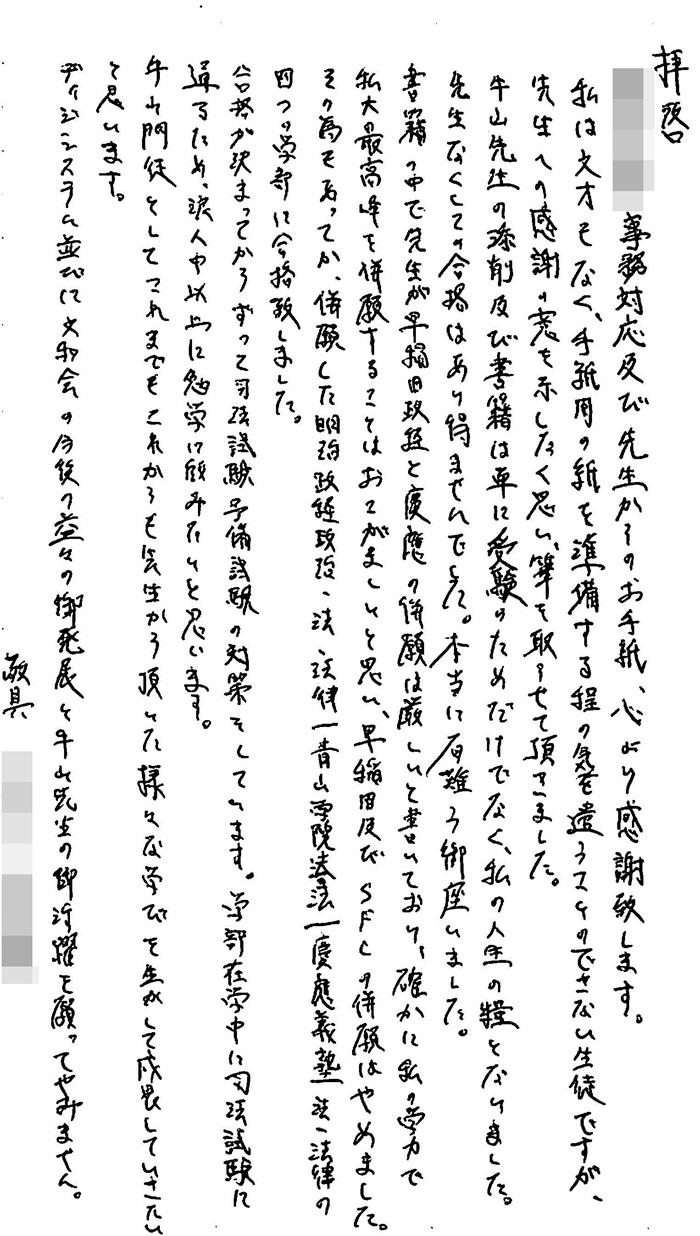 拝啓
事務対応及び先生からのお手紙、心より感謝致します。
私は文才もなく、手紙用の紙を準備する程の気を遣うことのできない生徒ですが、
先生への感謝の意を示したく思い、筆を取らせて頂きました。
牛山先生の添削及び書籍は単に受験のためだけでなく、私の人生の糧となりました。
先生なくしての合格はあり得ませんでした。本当に有難う御座いました。
書籍の中で先生が早稲田政経と慶應の併願は厳しいと書いており、確かに私の学力で
私大最高峰を併願することはおこがましいと思い、早稲田及びSFCの併願はやめました。
その為もあってか、併願した明治政経政治・法・法律―青山学院法法―慶應義塾法・法律の
四つの学部に合格致しました。
合格が決まってからずっと司法試験予備試験の対策をしています。学部在学中に司法試験に
通るため、浪人中以上に勉学に励みたいと思います。
牛山門徒としてこれまでもこれからも先生から頂いた様々な学びを生かして成長していきたい
と思います。
ディジシステム並びに文和会の今後の益々の御発展と牛山先生の御活躍を願ってやみません。
敬具